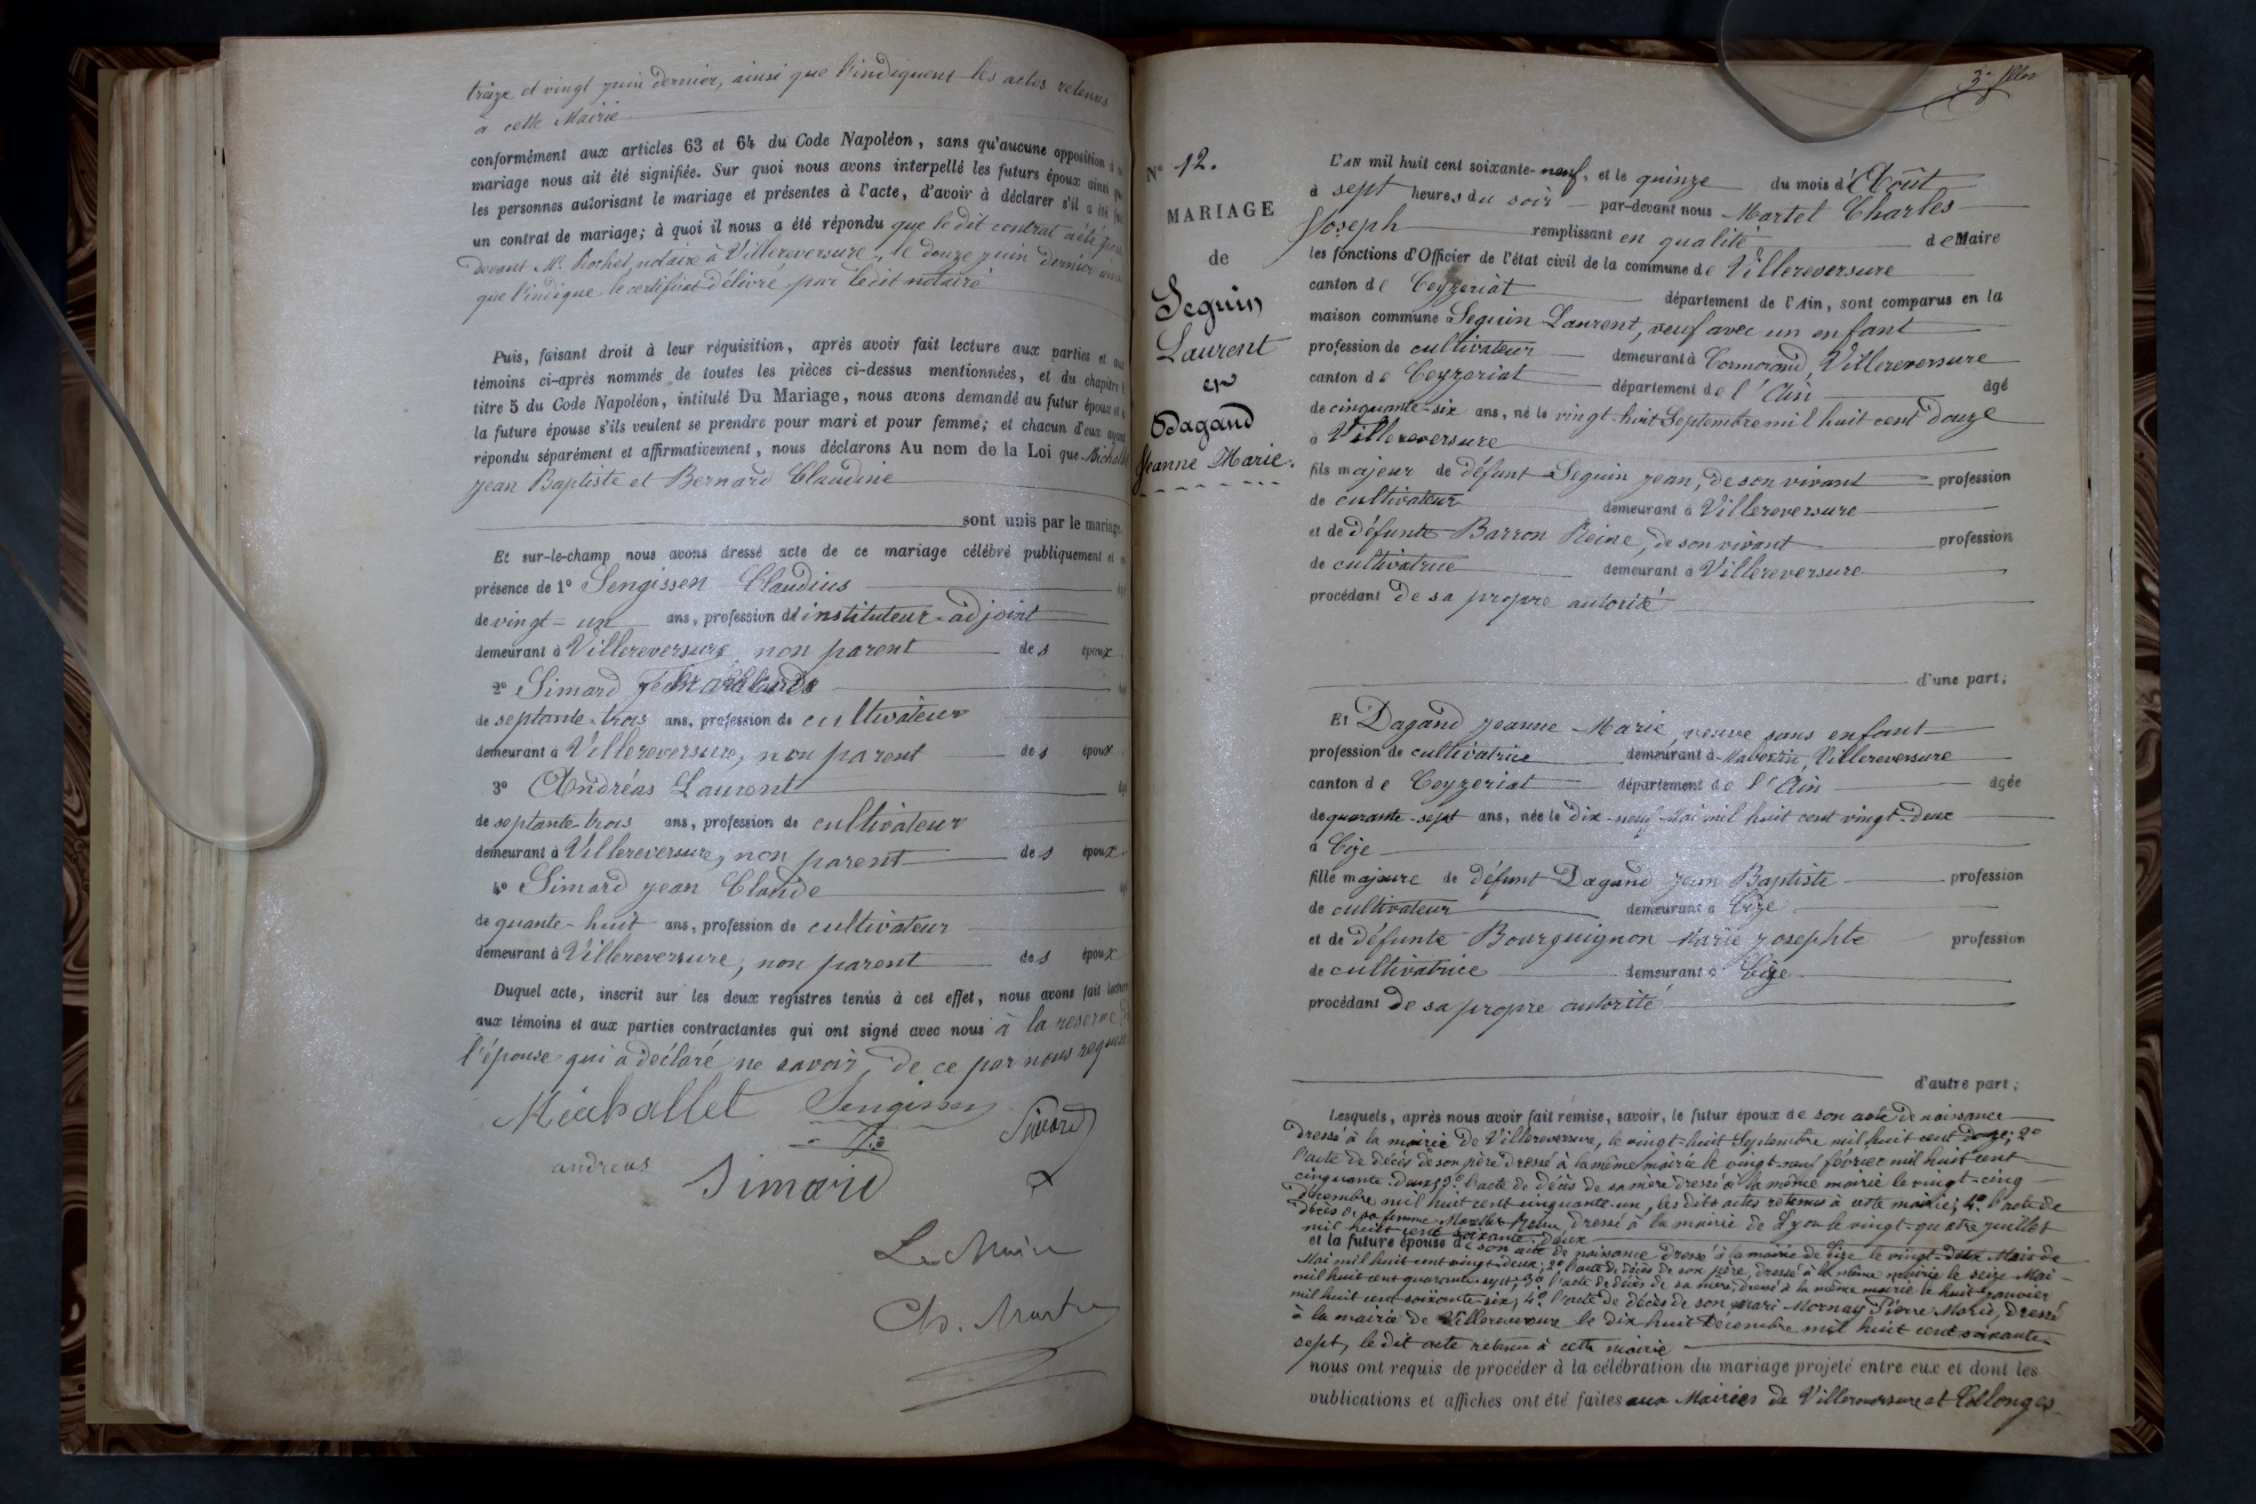 treize et vingt juin dernier, ainsi que l'indiquent les actes retenus
à cette Mairie
conformément aux articles 63 et 64 du Code Napoléon, sans qu'aucune opposition
mariage nous ait été signifiée. Sur quoi nous avons interpellé les futurs époux ainsi
les personnes autorisant le mariage et présentes à l'acte, d'avoir à déclarer s'il a été
un contrat de mariage; à quoi il nous a été répondu que le dit contrat a été
devant Me Rochet, notaire à Villereversure, le douze juin dernier
que l'indique le certificat délivré par ledit notaire
Puis, faisant droit à leur réquisition, après avoir fait lecture aux parties et
témoins ci-après nommés de toutes les pièces ci-dessus mentionnées, et du chapitre
titre 5 du Code Napoléon, intitulé Du Mariage, nous avons demandé au futur époux et
la future épouse s'ils veulent se prendre pour mari et pour femme; et chacun d'eux ayant
répondu séparément et affirmativement, nous déclarons Au nom de la Loi que
Jean Baptiste et Bernard Claudine
sont unis par le mariage.
Et sur-le-champ nous avons dressé acte de ce mariage célébré publiquement et
présence de 1° Sengissen Claudius
de vingt-un ans, profession d'instituteur-adjoint
demeurant à Villereversure, non parent des époux
2° Simard
de septante-trois ans, profession de cultivateur
demeurant à Villereversure, non parent des époux
3° Andréas Laurent
de septante-trois ans, profession de cultivateur
demeurant à Villereversure, non parent des époux
4° Simard Jean Claude
de quante-huit ans, profession de cultivateur
demeurant à Villereversure, non parent des époux
Duquel acte, inscrit sur les deux registres tenus à cet effet, nous avons fait lecture
aux témoins et aux parties contractantes qui ont signé avec nous à la réserve
l'épouse qui a déclaré ne savoir, de ce par nous requise
Michallet Sengissen
Simard
andreas Simard
Le Maire
Ch. Martel
N° 12.
MARIAGE
de
Seguin
Laurent
et
Dagand
Jeanne Marie.
L'AN mil huit cent soixante-neuf, et le quinze du mois d'Août
à sept heures du soir par-devant nous Martel Charles
Joseph remplissant en qualité de Maire
les fonctions d'Officier de l'état civil de la commune de Villereversure
canton de Ceyzeriat département de l'Ain, sont comparus en la
maison commune Seguin Laurent, veuf avec un enfant
profession de cultivateur demeurant à Cormorand, Villereversure
canton de Ceyzeriat département de l'Ain âgé
de cinquante-six ans, né le vingt-huit Septembre mil huit cent douze
à Villereversure
fils majeur de défunt Seguin Jean, de son vivant profession
de cultivateur demeurant à Villereversure
et de défunte Barron Reine, de son vivant profession
de cultivatrice demeurant à Villereversure
procédant de sa propre autorité
d'une part;
Et Dagand Jeanne Marie, veuve sans enfant
profession de cultivatrice demeurant à Villereversure
canton de Ceyzeriat département de l'Ain âgée
de quarante-sept ans, née le dix-neuf Mai mil huit cent vingt-deux
à Cize
fille majeure de défunt Dagand Jean Baptiste profession
de cultivateur demeurant à Cize
et de défunte Bourguignon Marie Josephte profession
de cultivatrice demeurant à Cize
procédant de sa propre autorité
d'autre part;
Lesquels, après nous avoir fait remise, savoir, le futur époux de son acte de naissance
dressé à la mairie de Villereversure, le vingt-huit Septembre mil huit cent douze; 2°
l'acte de décès de son père dressé à la même mairie le vingt-neuf février mil huit cent
cinquante-deux; 3° l'acte de décès de sa mère dressé à la même mairie le vingt-cinq
décembre mil huit cent cinquante-un, les dits actes retenus à cette mairie; 4° l'acte de
décès de sa femme dressé à la mairie de Lyon le vingt-quatre juillet
mil huit cent soixante-deux
et la future épouse de son acte de naissance dressé à la mairie de Cize le vingt-deux Mois de
Mai mil huit cent vingt-deux; 2° l'acte de décès de son père, dressé à la même mairie le seize Mai
mil huit cent quarante-sept; 3° l'acte de décès de sa mère, dressé à la même mairie le huit Janvier
mil huit cent soixante-six; 4° l'acte de décès de son mari Mornay Pierre Marie, dressé
à la mairie de Villereversure le dix huit Décembre mil huit cent soixante-
sept, le dit acte retenu à cette mairie
nous ont requis de procéder à la célébration du mariage projeté entre eux et dont les
publications et affiches ont été faites aux Mairies de Villereversure et Collonges